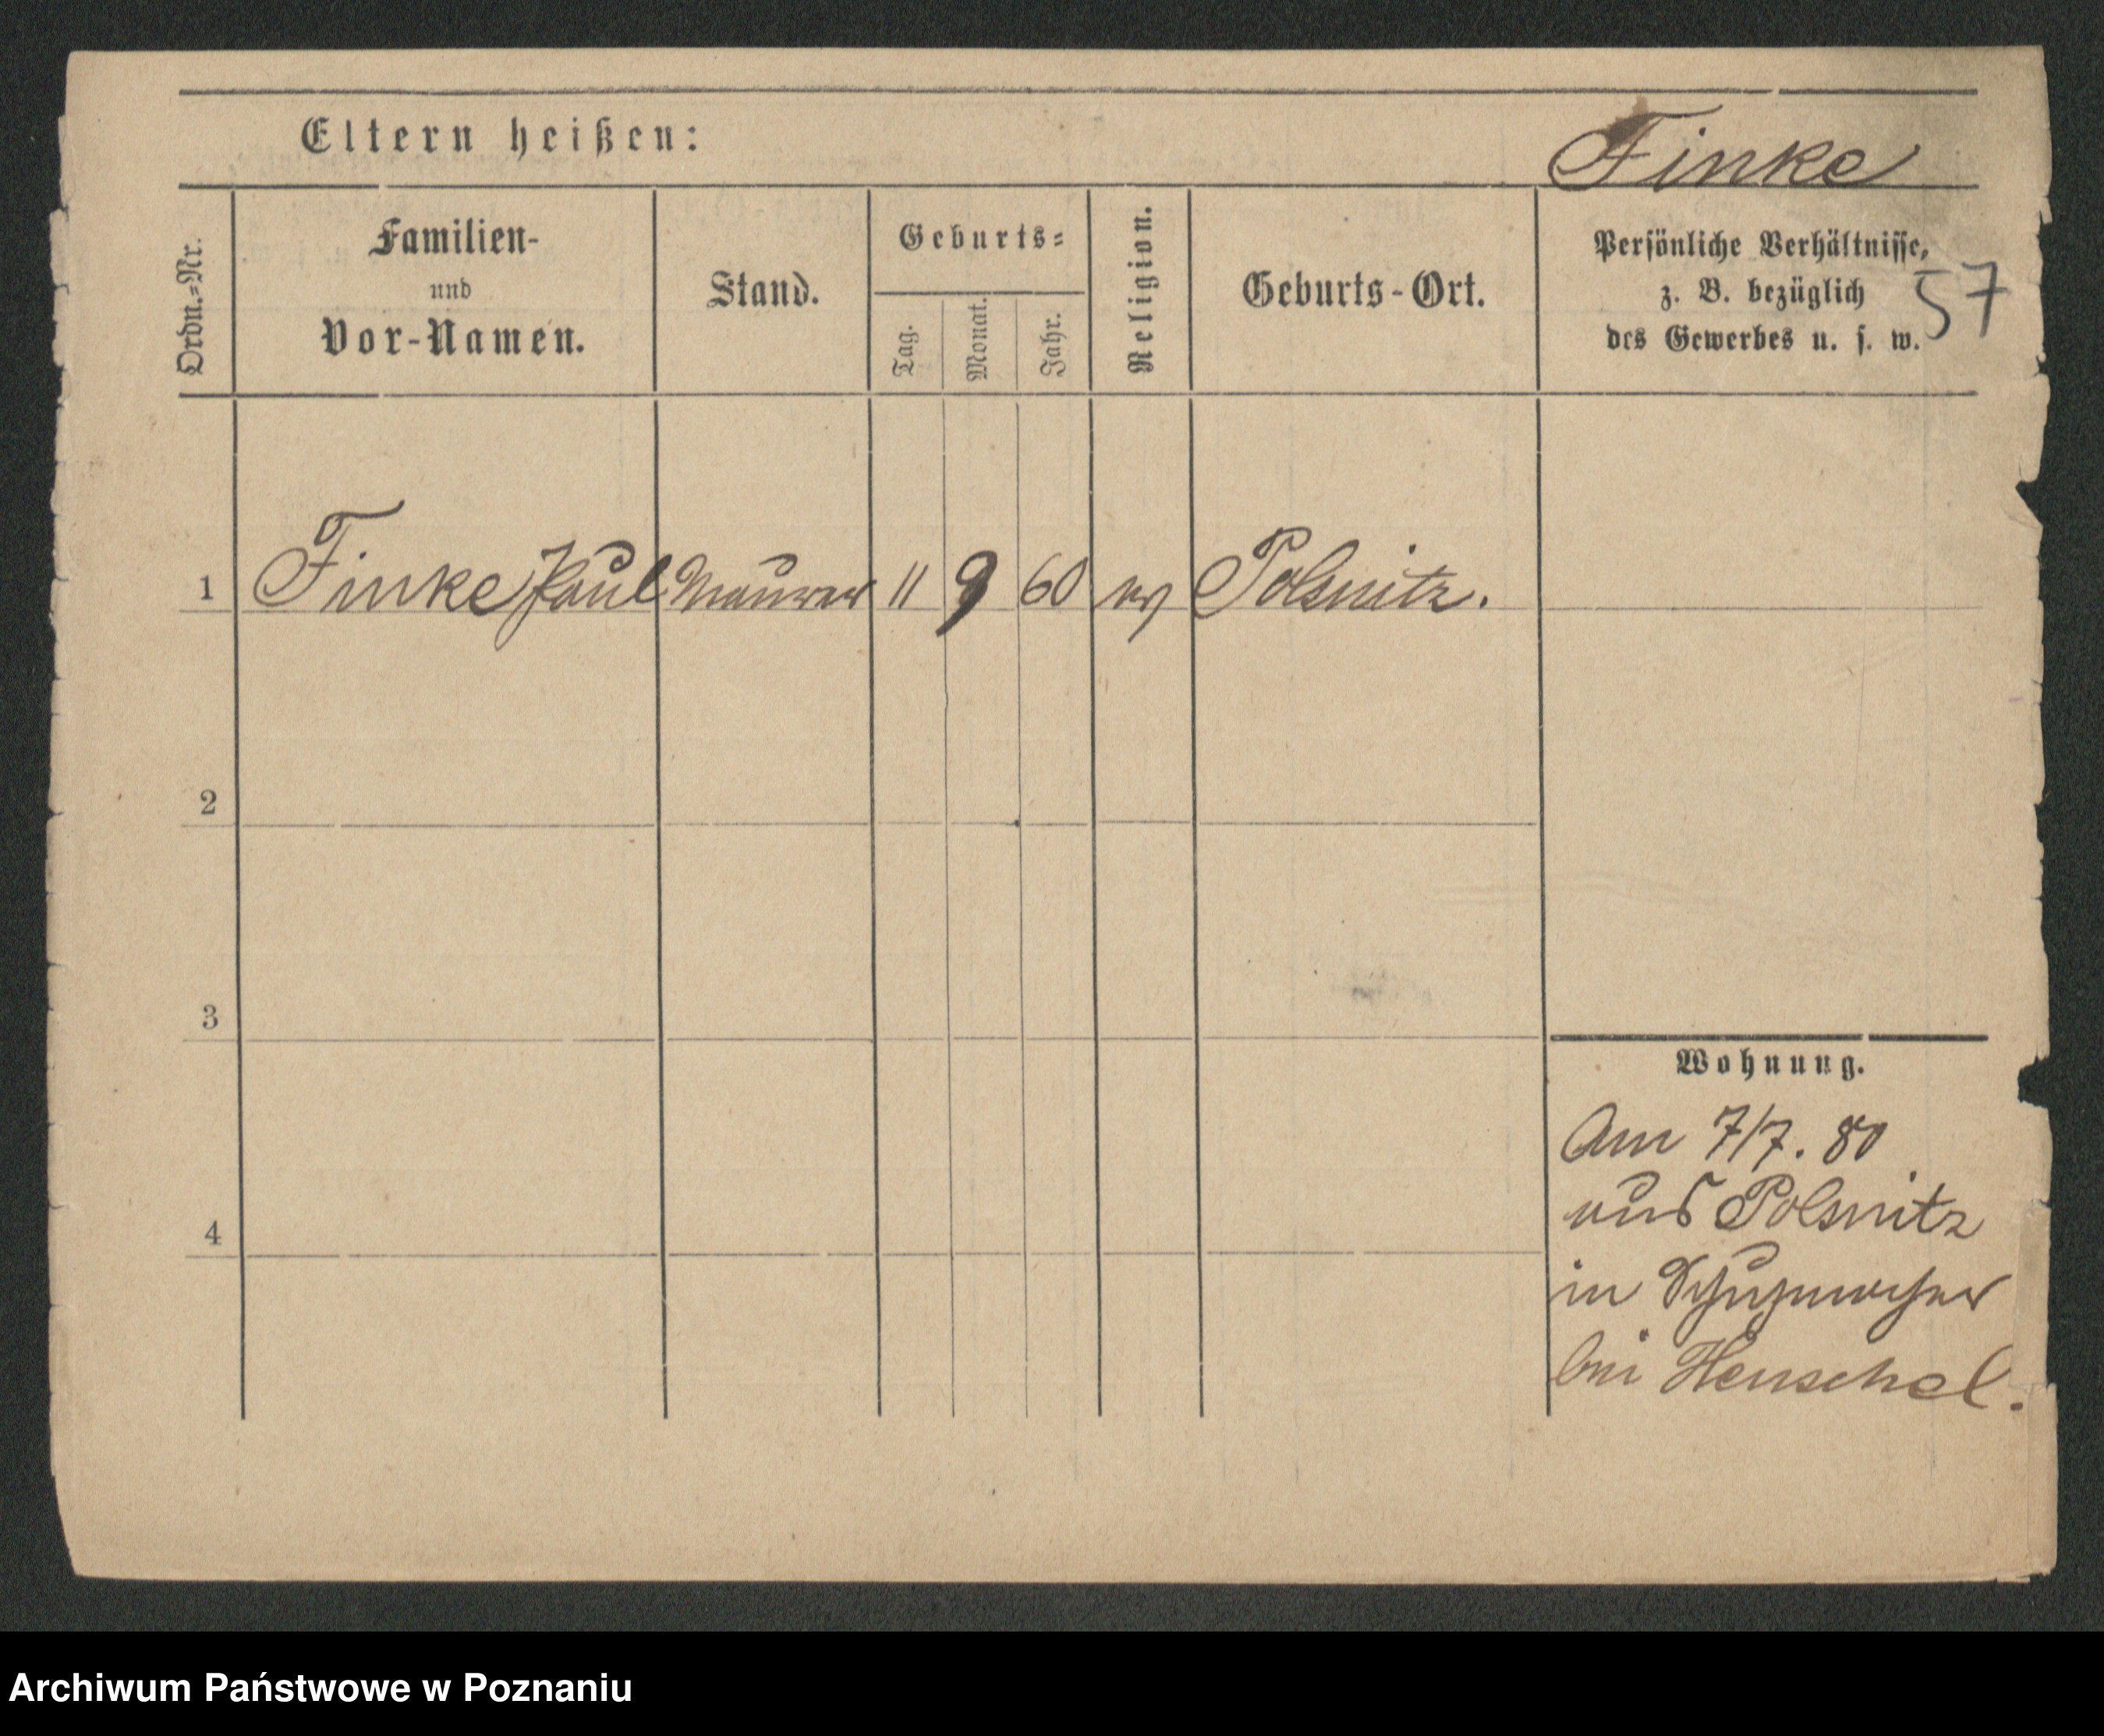 Eltern heißen:
Finke
Ordn.=Nr.
Familien-
und
Vor-Namen.
Stand.
Geburts=
Tag.
Monat.
Jahr.
Religion.
Geburts-Ort.
Persönliche Verhältnisse,
z. B. bezüglich
des Gewerbes u. s. w.
57
1 Finke Paul Maurer 11 9 60 ev Polsnitz.
2
3
4
Wohnung.
Am 7/7. 80
aus Polsnitz
in
bei Henschel.
Archiwum Państwowe w Poznaniu